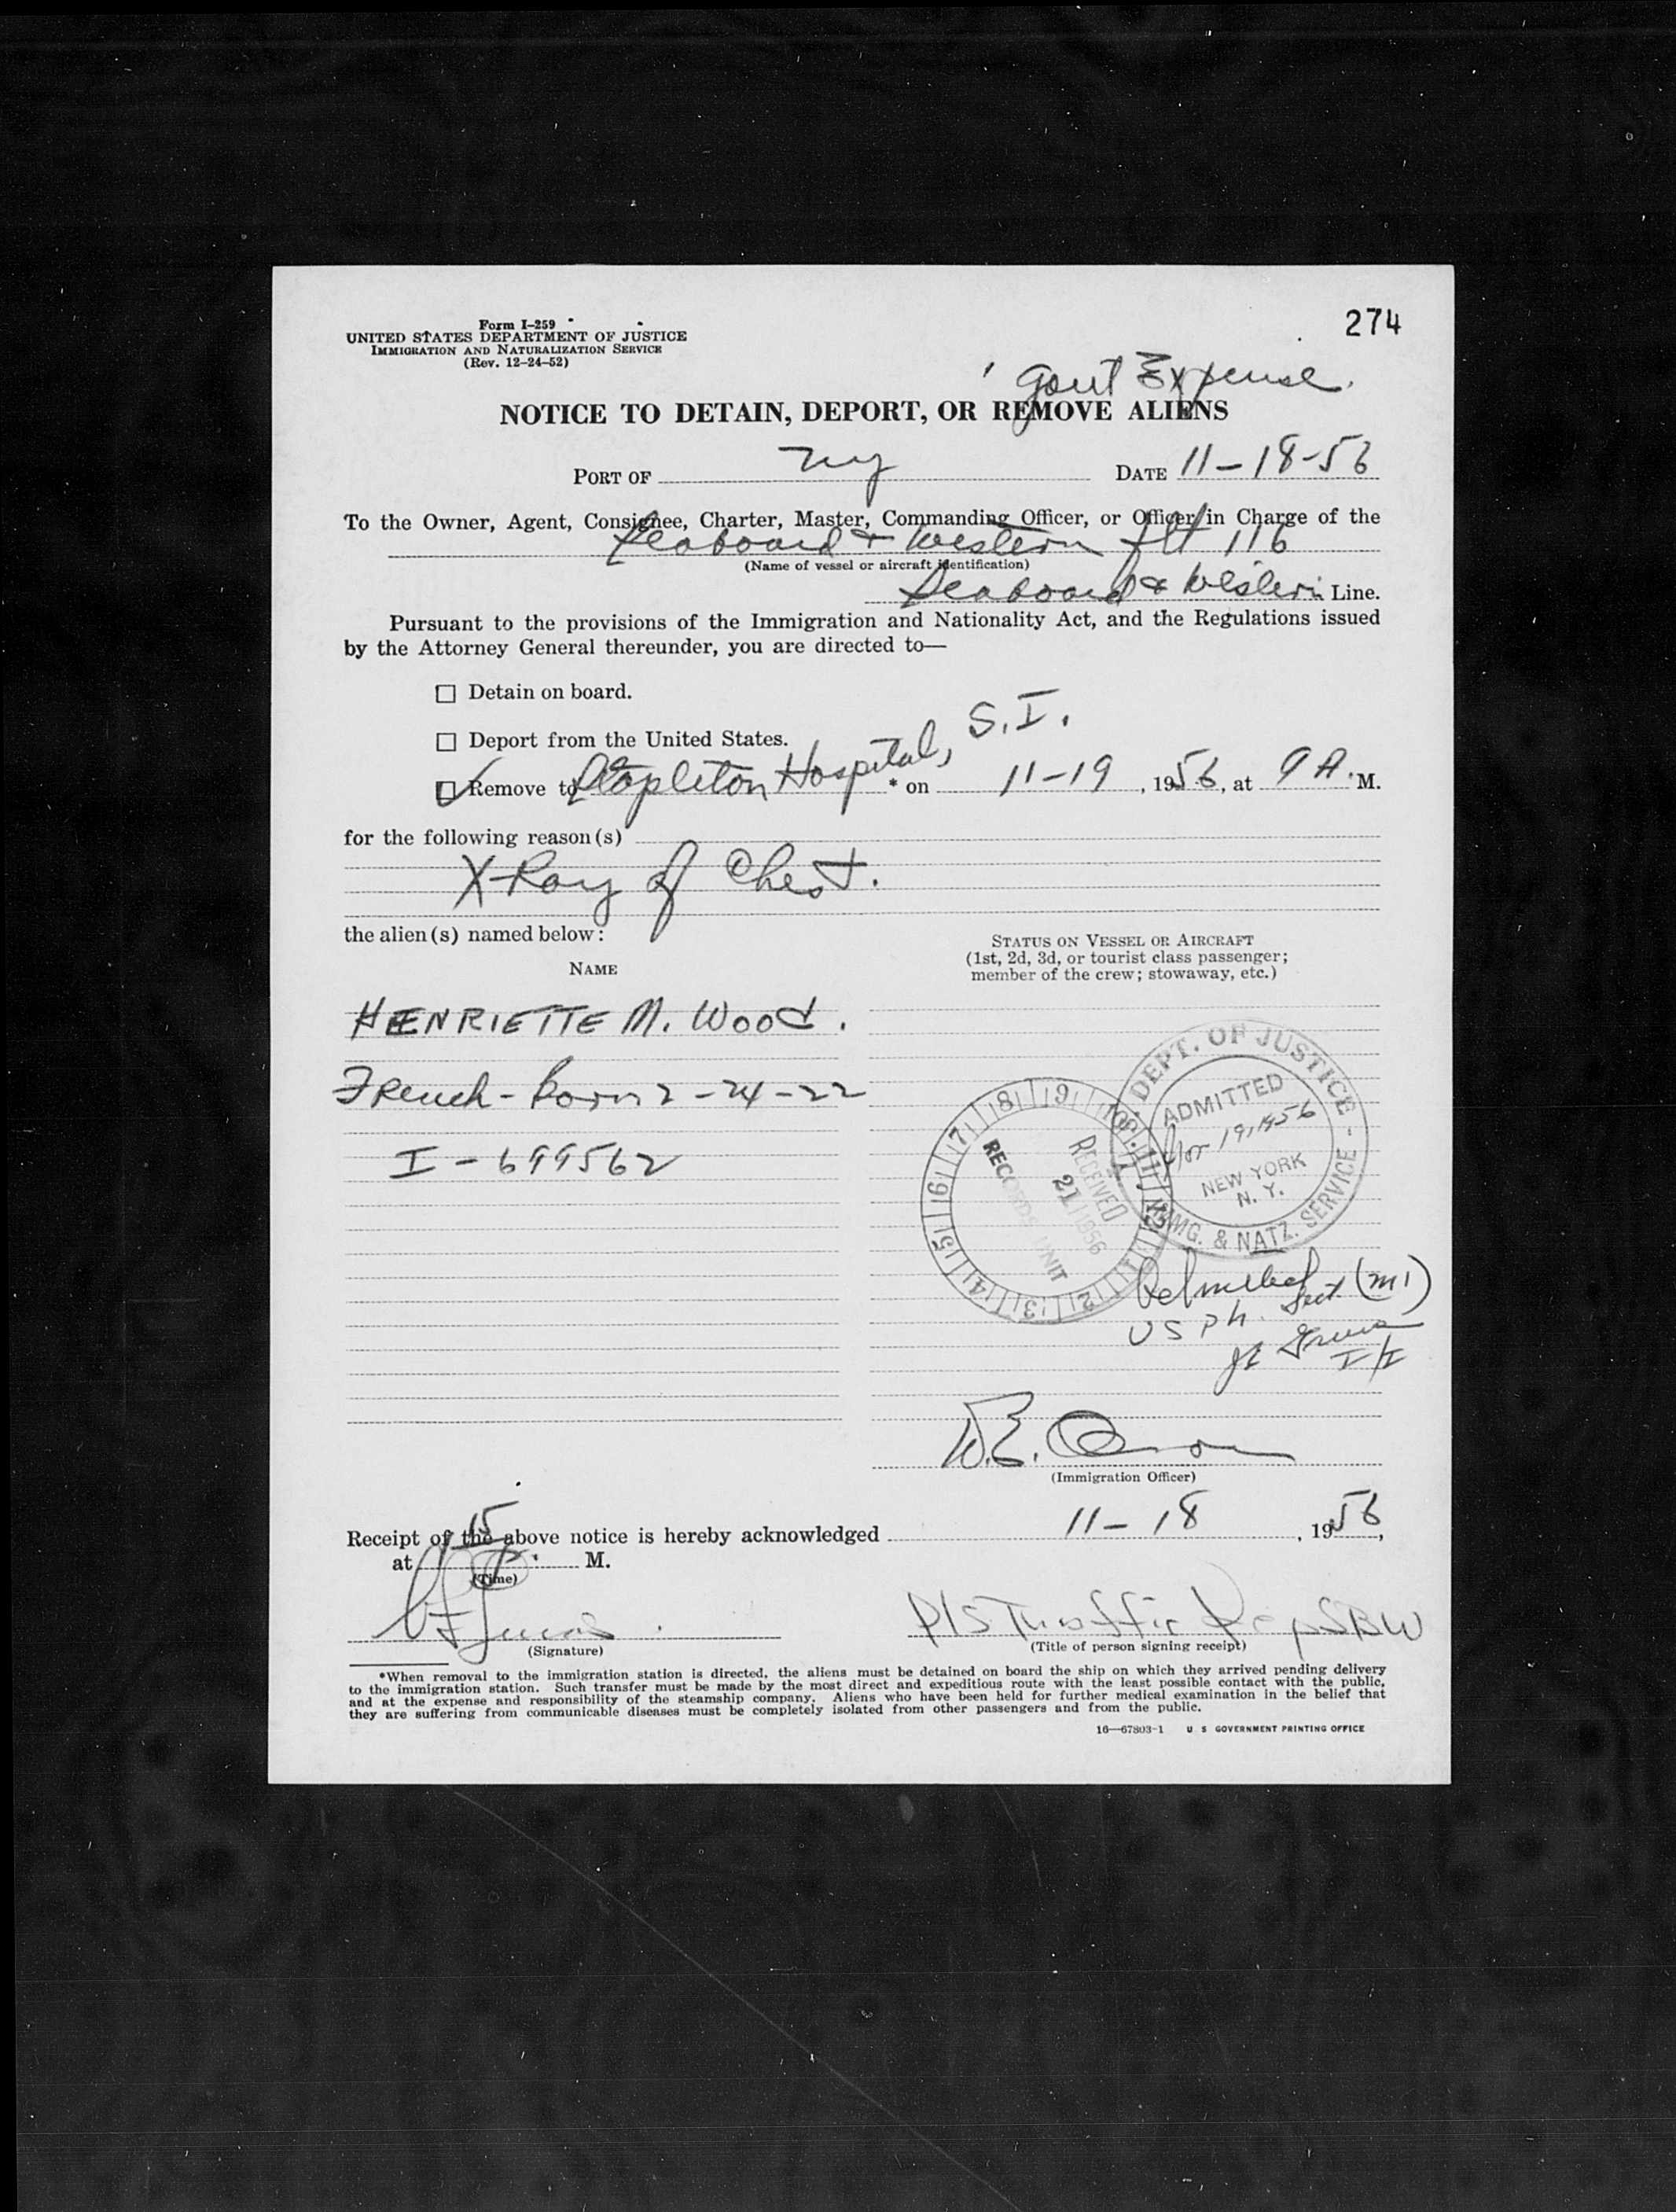 274
Form I-259
UNITED STATES DEPARTMENT OF JUSTICE
IMMIGRATION AND NATURALIZATION SERVICE
(Rev. 12-24-52)
Govt Expense.
NOTICE TO DETAIN, DEPORT, OR REMOVE ALIENS
PORT OF NY DATE 11-18-56
To the Owner, Agent, Consignee, Charter, Master, Commanding Officer, or Officer in Charge of the
Seaboard & Western flt 116
(Name of vessel or aircraft identification)
Seaboard & Western Line.
Pursuant to the provisions of the Immigration and Nationality Act, and the Regulations issued
by the Attorney General thereunder, you are directed to—
☐ Detain on board.
☐ Deport from the United States.
☑ Remove to Stapleton Hospital, S.I. * on 11-19, 1956, at 9 A. M.
for the following reason(s)
X-Ray of Chest.
the alien(s) named below:
NAME
STATUS ON VESSEL OR AIRCRAFT
(1st, 2d, 3d, or tourist class passenger;
member of the crew; stowaway, etc.)
HENRIETTE M. WOOD.
French - born 2-24-22
I-699562
U.S. DEPT. OF JUSTICE - IMMG. & NATZ. SERVICE -
ADMITTED
Nov 19, 1956
NEW YORK
N. Y.
8 9 10 11 12 1 2 3 4 5 6 7
RECEIVED
21 1956
RECORDS UNIT
Admitted
US PH
(Immigration Officer)
Receipt of the above notice is hereby acknowledged 11-18, 1956,
at 9 15 P. M.
(Time)
(Signature)
Traffic Rep SBW
(Title of person signing receipt)
*When removal to the immigration station is directed, the aliens must be detained on board the ship on which they arrived pending delivery
to the immigration station. Such transfer must be made by the most direct and expeditious route with the least possible contact with the public,
and at the expense and responsibility of the steamship company. Aliens who have been held for further medical examination in the belief that
they are suffering from communicable diseases must be completely isolated from other passengers and from the public.
16—67803-1 U S GOVERNMENT PRINTING OFFICE